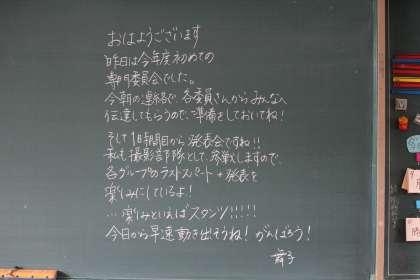 おはようございます
昨日は今年度初めての
専門委員会でした。
今朝の連絡で、各委員さんからみんなへ
伝達してもらうので、準備をしておいてね!
そして1時間目から発表会ですね!!
私も撮影部隊として、参戦しますので、
各グループのラストスパート+発表を
楽しみにしているよ!
…楽しみといえばスタンツ!!!!!
今日から早速動き出そうね! がんばろう!